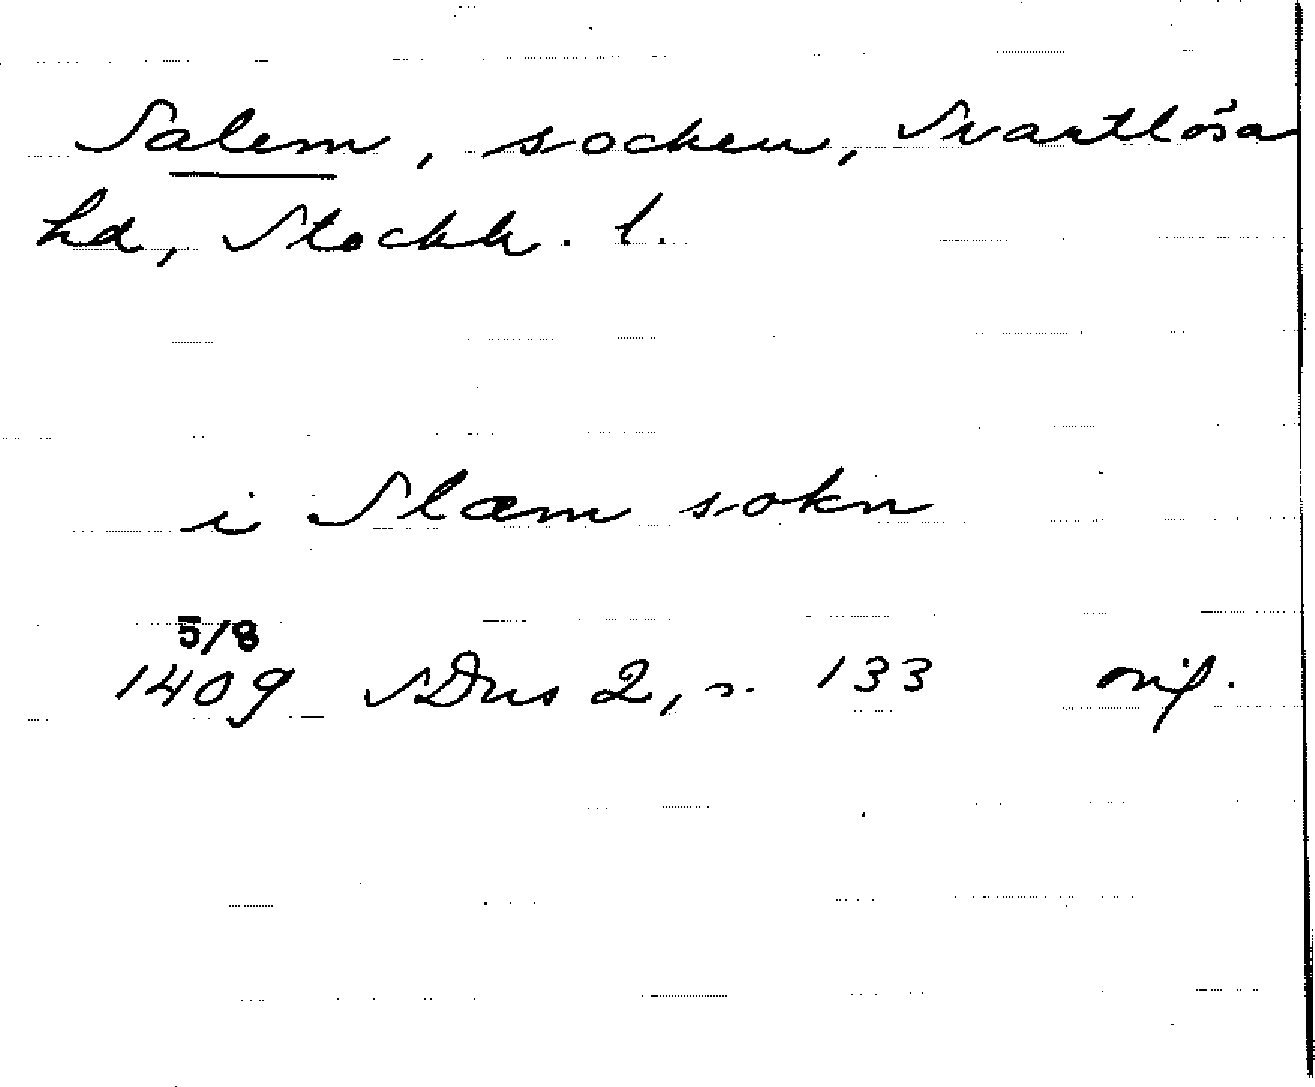 Salem, socken, Svartlösa
hd, Stockh. l.
i Slæm sokn
5/8
1409 SDns 2, s. 133 orig.